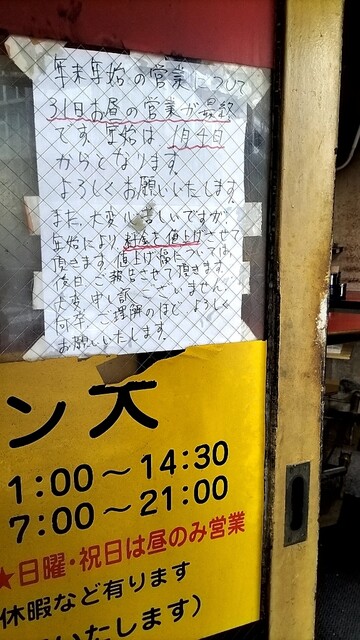 年末年始の営業について
31日お昼の営業が最終
です。年始は1月4日
からとなります。
よろしくお願いいたします。
また、大変心苦しいですが、
年始により、料金を値上げさせて
頂きます。値上げ幅については、
後日ご報告させて頂きます。
大変申し訳ございません。
何卒ご理解のほどよろしく
お願いいたします。
ン大
1:00～14:30
7:00～21:00
★日曜・祝日は昼のみ営業
休暇など有ります
いたします)